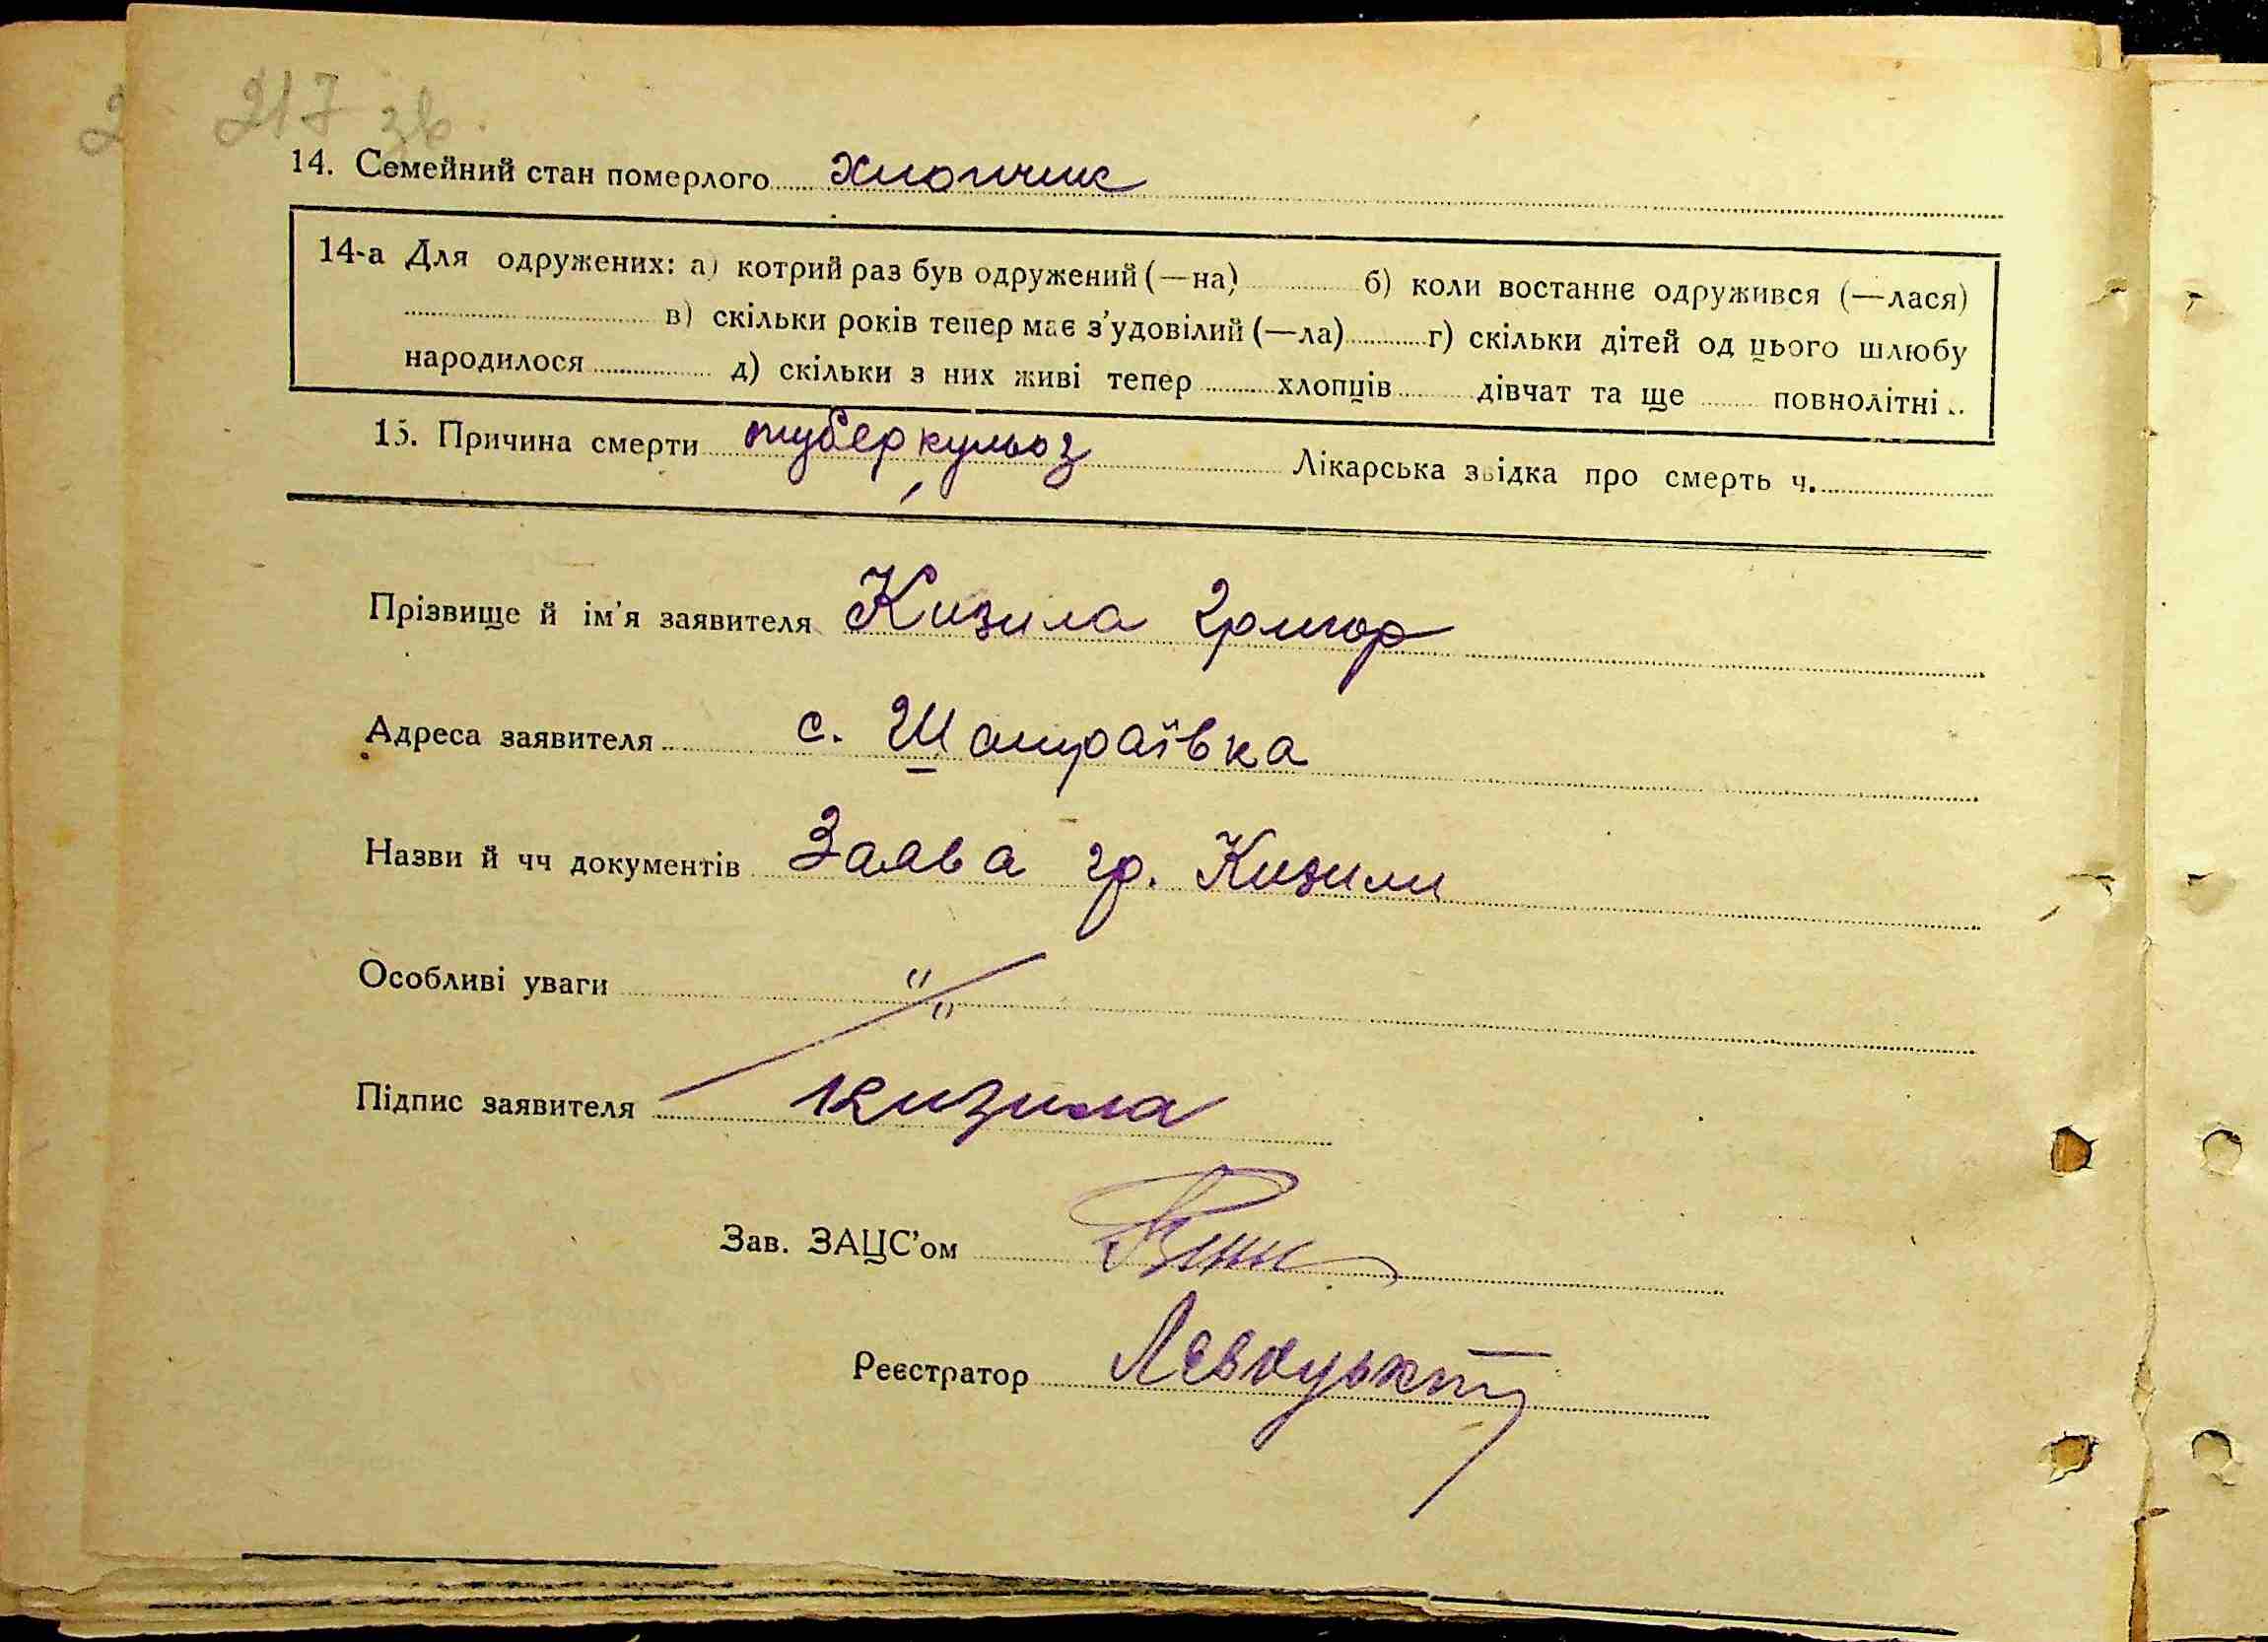 217 зв.
14. Семейний стан померлого хлопчик
14-а Для одружених: а) котрий раз був одружений (—на) б) коли востаннє одружився (—лася)
в) скільки років тепер має з'удовілий (—ла) г) скільки дітей од цього шлюбу
народилося д) скільки з них живі тепер хлопців дівчат та ще повнолітні
15. Причина смерти туберкульоз Лікарська звідка про смерть ч.
Прізвище й ім'я заявителя Кизила Григор
Адреса заявителя с. Шапраївка
Назви й чч документів Заява гр. Кизили
Особливі уваги
Підпис заявителя Кизила
Зав. ЗАЦС'ом
Реєстратор